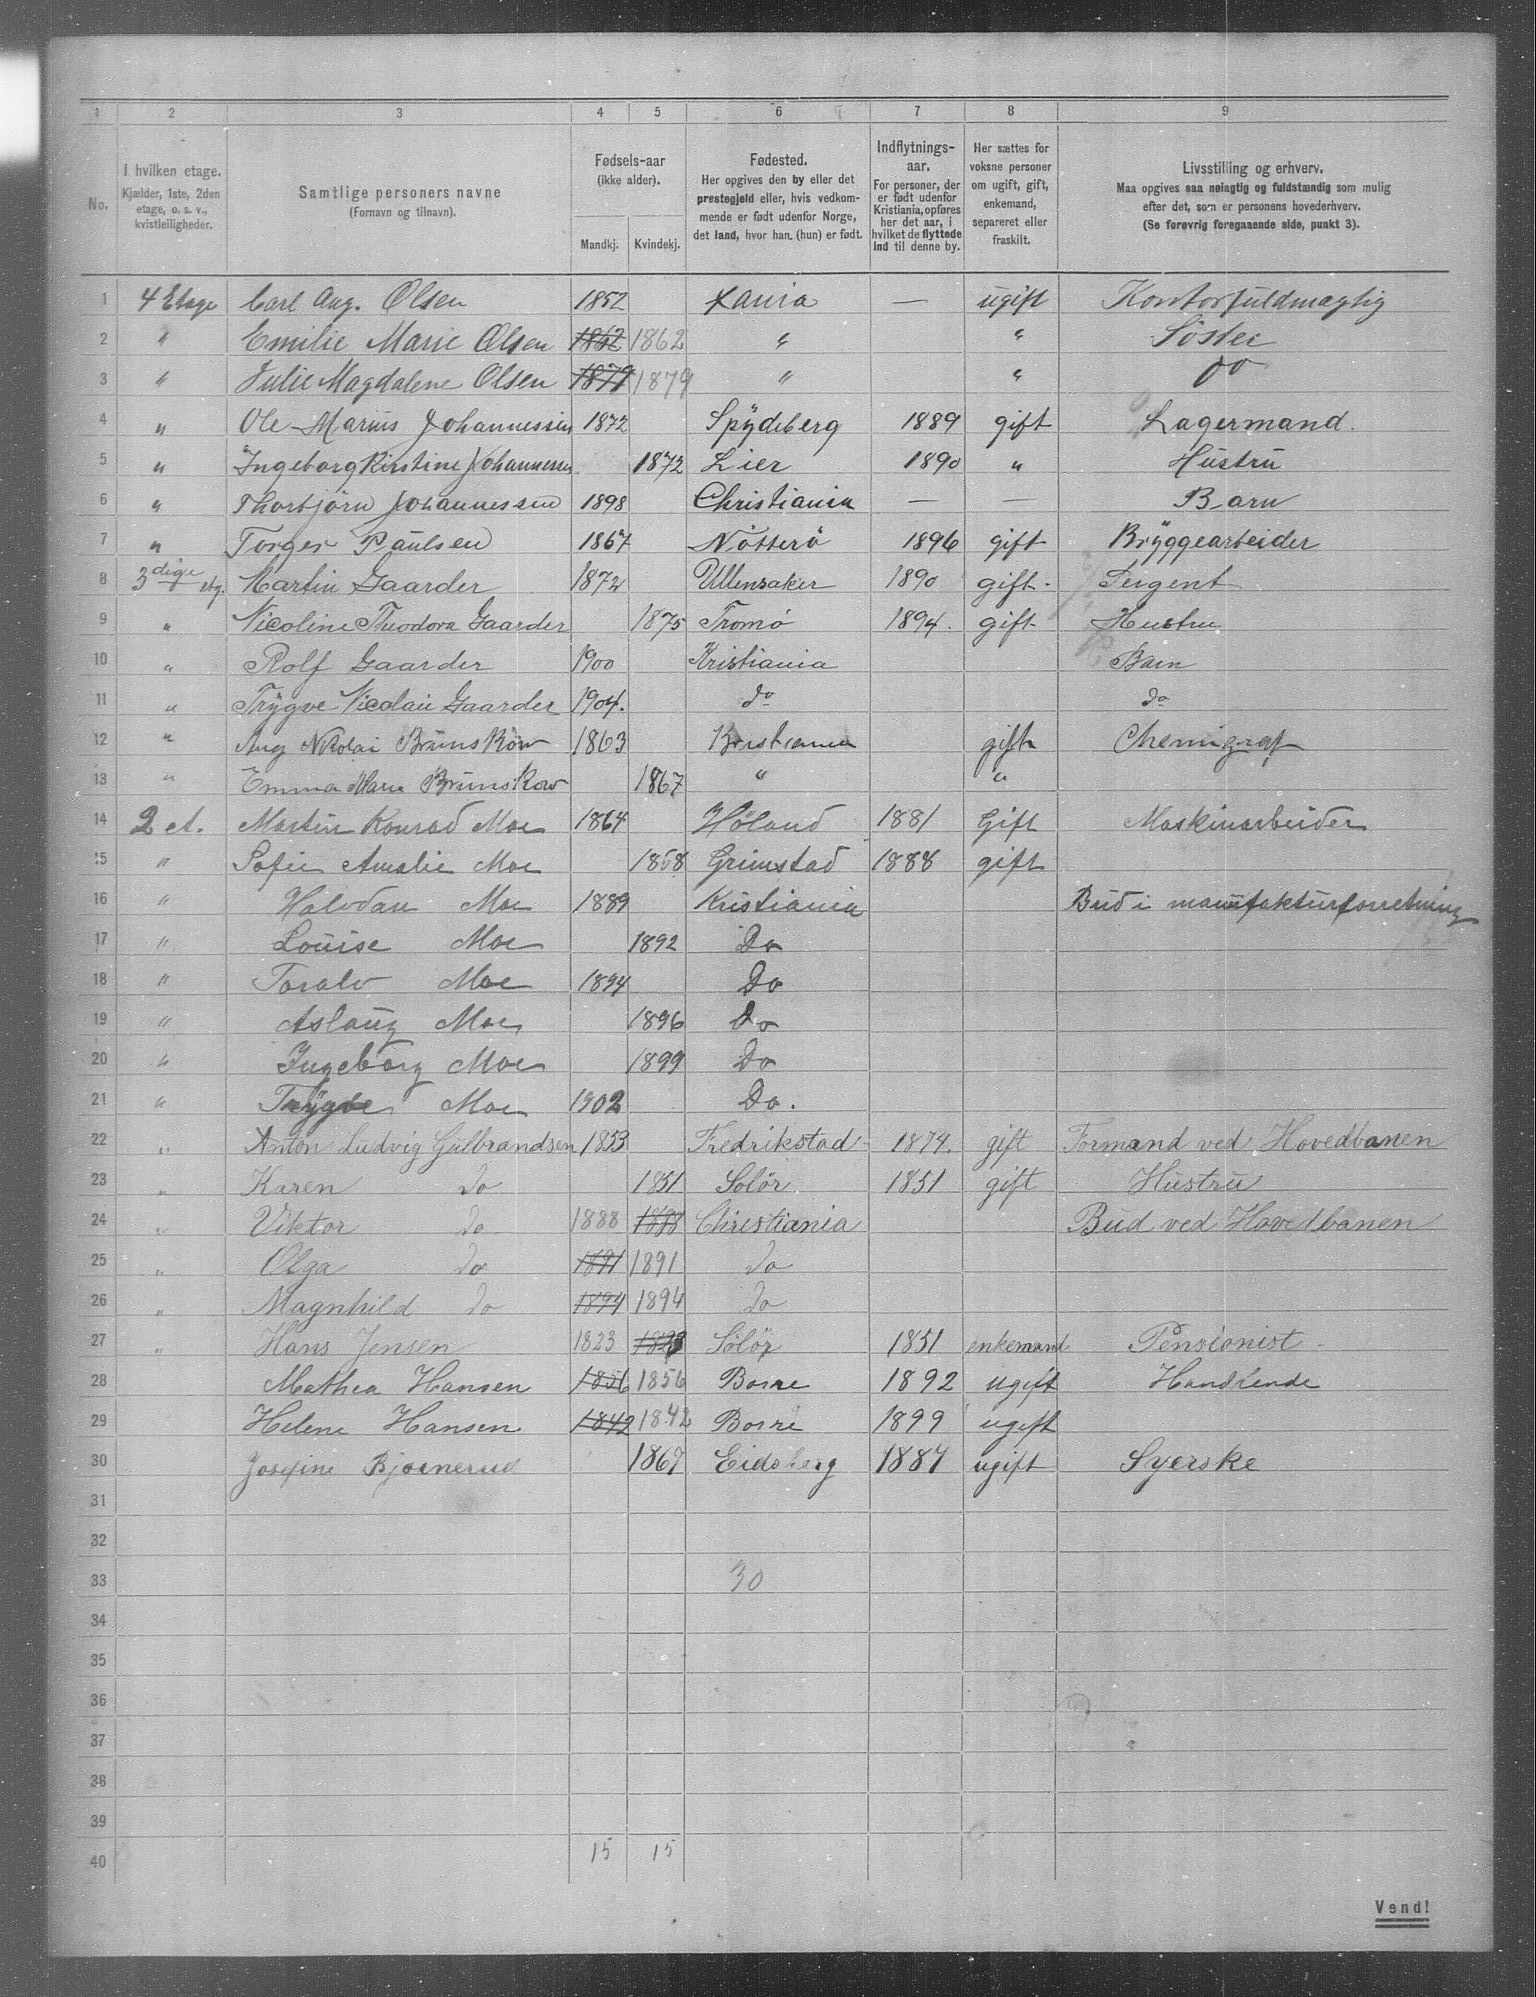 1 2 3 4 5 6 7 8 9
No.
I hvilken etage.
Kjælder, 1ste, 2den
etage, o. s. v.,
kvistleiligheder.
Samtlige personers navne
(Fornavn og tilnavn).
Fødsels-aar
(ikke alder).
Mandkj. Kvindekj.
Fødested.
Her opgives den by eller det
prestegjeld eller, hvis vedkom-
mende er født udenfor Norge,
det land, hvor han (hun) er født.
Indflytnings-
aar.
For personer, der
er født udenfor
Kristiania, opføres
her det aar, i
hvilket de flyttede
ind til denne by.
Her sættes for
voksne personer
om ugift, gift,
enkemand,
separeret eller
fraskilt.
Livsstilling og erhverv.
Maa opgives saa nøiagtig og fuldstændig som mulig
efter det, som er personens hovederhverv.
(Se forøvrig foregaaende side, punkt 3).
1 4 Etage Carl Aug. Olsen 1852 Xania — ugift Kontorfuldmægtig
2 " Emilie Marie Olsen 1862 1862 " " Söster
3 " Julie Magdalene Olsen 1879 1879 " " do
4 " Ole Marius Johannessen 1872 Spydeberg 1889 gift Lagermand.
5 " Ingeborg Kirstine Johannesen 1872 Lier 1890 " Hustru
6 " Thorbjörn Johannessen 1898 Christiania — — Barn
7 " Torger Paulsen 1867 Nötterö 1896 gift Bryggearbeider
8 3dige etg. Martin Gaarder 1872 Ullensaker 1890 gift. Sergent
9 " Nicoline Theodora Gaarder 1875 Tromö 1894. gift Hustru
10 " Rolf Gaarder 1900 Kristiania Barn
11 " Trygve Nicolai Gaarder 1904. do do
12 " Aug Nikolai Brunskow 1863 Kristiania gift Chemigraf
13 " Emma Marie Brunskow 1867 " "
14 2 et. Martin Konrad Moe 1864 Høland 1881 Gift Maskinarbeider
15 " Sofie Amalie Moe 1868 Grimstad 1888 gift
16 " Halvdan Moe 1889 Kristiania Bud i manufakturforretning
17 " Louise Moe 1892 Do
18 " Toralv Moe 1894 Do
19 " Aslaug Moe 1896 Do
20 " Ingeborg Moe 1899 Do
21 " Trygve Moe 1902 Do.
22 " Anton Ludvig Gulbrandsen 1853 Fredrikstad 1874. gift Formand ved Hovedbanen
23 " Karen do 1851 Solör 1851 gift Hustru
24 " Viktor do 1888 1888 Christiania Bud ved Hovedbanen
25 " Olga do 1891 1891 do
26 " Magnhild do 1894 1894 do
27 " Hans Jensen 1823 1823 Solör 1851 enkemand Pensionist
28 Mathea Hansen 1856 1856 Borre 1892 ugift Handlende
29 Helene Hansen 1842 1842 Borre 1899 ugift
30 Josefine Bjørnerud 1867 Eidsberg 1887 ugift Syerske
31
32
33 30
34
35
36
37
38
39
40 15 15
Vend!